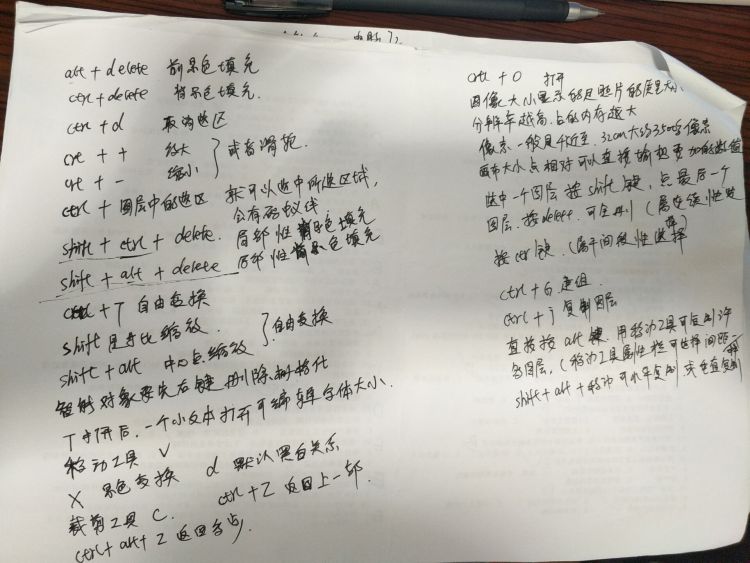 alt + delete 前景色填充
ctrl + delete 背景色填充.
ctrl + d 取消选区
ctrl + + 放大 } 或者滑轮.
ctrl + - 缩小
ctrl + 图层中的选区 就可以选中所选区域,
会有蚂蚁线
shift + ctrl + delete. 局部性背景色填充
shift + alt + delete 局部性前景色填充
ctrl + T 自由变换
shift 是等比缩放. } 自由变换
shift + alt 中心点缩放
智能对象要先右键 删除栅格化
T 打开后, 一个小文本打开可编辑字体大小.
移动工具 V
X 景色变换 d 默认黑白关系
裁剪工具 C. ctrl + Z 返回上一部.
ctrl + alt + Z 返回多步.
ctrl + O 打开
图像大小显示的是照片的质量大小
分辨率越高. 占的内存越大
像素一般是 32cm大约3508像素
画布大小点相对可以直接输想要加的数值
选中一个图层按 shift 键, 点最后一个
图层. 按delete. 可全删 (属连续性选择)
按 ctrl 键. (属于间接性选择
ctrl + G 建组.
ctrl + j 复制图层
直接按 alt 键 用移动工具可复制许
多图层. (移动工具属性栏可选择间距
shift + alt + 移动 可水平复制 或垂直复制